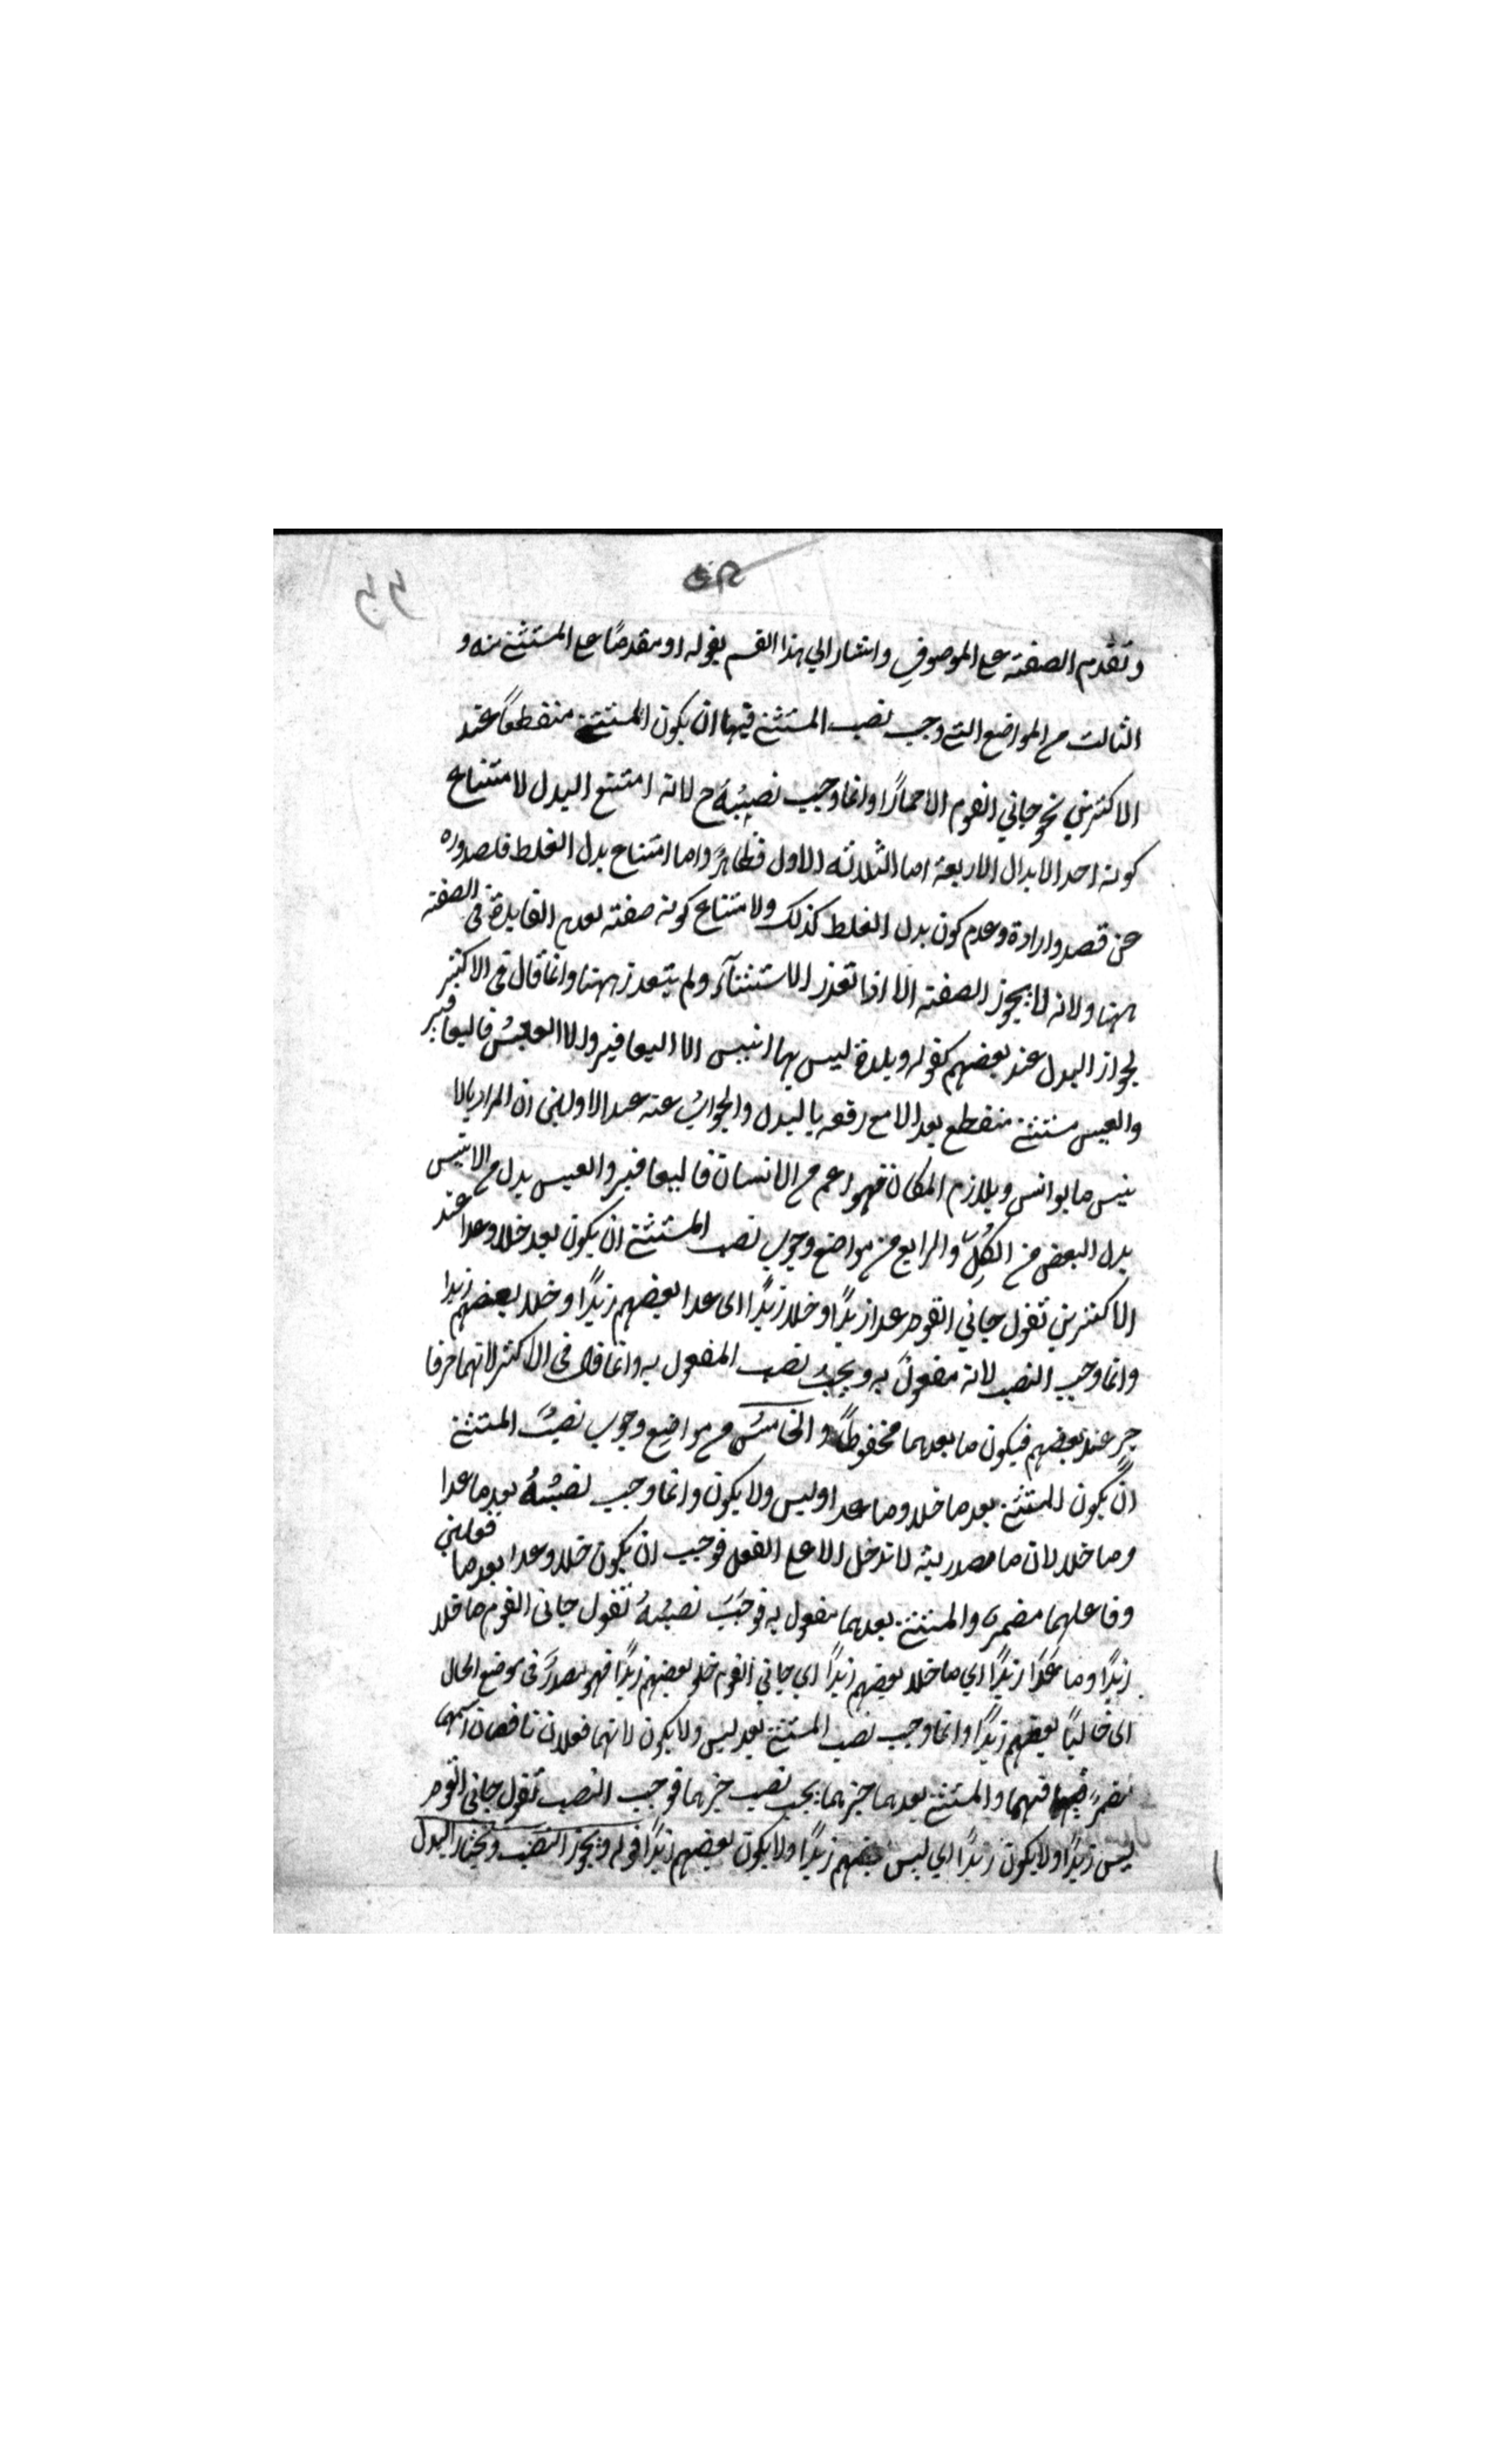 وتقدم الصفة على الموصوف واشار الي هذا القسم بقوله او مقدمًا على المستثنى منه و
الثالث من المواضع التي وجب نصب المستثنى فيها ان يكون المستثنى منقطعًا عند
الاكثرين نحو جاني القوم الا حمارًا وانما وجب نصبُهُ ح لانه امتنع البدل لامتناع
كونه احد الابدال الاربعة اما الثلاثة الاول فظاهرٌ واما امتناع بدل الغلط فلصدوره
عن قصد وارادة وعدم كون بدل الغلط كذلك ولامتناع كونه صفة لعدم الفايدة في الصفة
ههنا ولانه لا يجوز الصفة الا اذا تعذر الاستثنآء ولم يتعذر ههنا وانما قال في الاكثر
لجواز البدل عند بعضهم كقوله وبلدة ليس بها انيس الا اليعافير والا العيسُ فاليعافير
والعيس مستثنى منقطع بعد الا مع رفعه بالبدل والجوابُ عنه عند الاولين ان المراد بالا
نيس ما يوانس ويلازم المكان فهو اعم من الانسان فاليعافير والعيس بدل من الانيس
بدل البعض من الكُلِّ والرابع من مواضع وجوب نصب المستثنى ان يكون بعد خلا وعدا عند
الاكثرين تقول جاني القوم عدا زيدًا وخلا زيدًا اى عدا بعضهم زيدًا وخلا بعضهم زيدا
وانما وجب النصب لانه مفعولٌ به ويجبُ نصب المفعول به وانما قال فى الاكثر لانهما حرفا
جرٍ عند بعضهم فيكون ما بعدهما مخفوظًا والخامسُ من مواضِع وجوب نصبُ المستثنى
انْ يكون المستثنى بعد ما خلا وما عدا وليس ولا يكون وانما وجب نصبُهُ بعد ما عدا
وما خلا لان ما مصدرية لا تدخل الا على الفعل فوجب ان يكون خلا وعدا بعد ما فعلين
وفاعلهما مضمرٌ والمستثنى بعدهما مفعول به فوجَبَ نصبُهُ تقول جانى القوم ما خلا
زيدًا وما عَدَا زيدًا اي ما خلا بعضهم زيدًا اي جاني القوم خلو بعضهم زيدًا فهو مصدرٌ فى موضع الحال
اى خاليًا بعضهم زيدًا وانما وجب نصب المستثنى بعد ليس ولا يكون لانهما فعلان ناقصان اسمهما
مضمرٌ فيهما والمستثنى بعدهما خبرهما يجب نصب خبرهما فوجب النصب تقول جانى القوم
ليس زيدًا ولا يكون زيدًا اي ليس بعضهم زيدًا ولا يكون بعضهم زيدًا قوله ويجوز النصب ويختار البدل